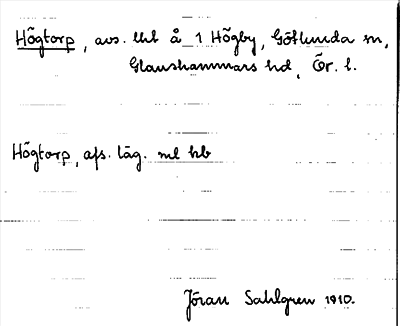 Högtorp, avs. lht å 1 Högby, Götlunda sn,
Glanshammars hd, Ör. l.
Högtorp, afs. läg. ml hb
Jöran Sahlgren 1910.